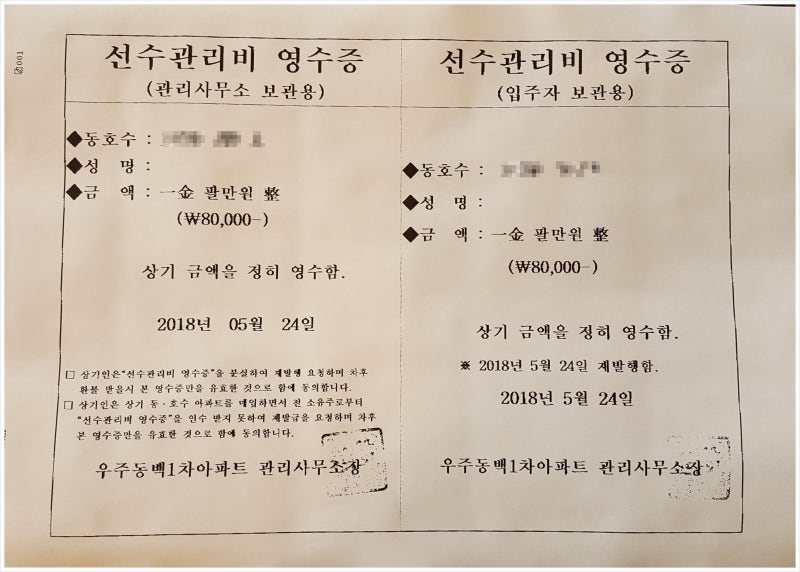 선수관리비 영수증
(관리사무소 보관용)
◆동호수 :
◆성 명 :
◆금 액 : 一金 팔만원 整
(₩80,000-)
상기 금액을 정히 영수함.
2018년 05월 24일
□ 상기인은"선수관리비 영수증"을 분실하여 재발행 요청하며 차후
환불 받을시 본 영수증만을 유효한 것으로 함에 동의합니다.
□ 상기인은 상기 동·호수 아파트를 매입하면서 전 소유주로부터
"선수관리비 영수증"을 인수 받지 못하여 재발급을 요청하며 차후
본 영수증만을 유효한 것으로 함에 동의합니다.
우주동백1차아파트 관리사무소장
선수관리비 영수증
(입주자 보관용)
◆동호수 :
◆성 명 :
◆금 액 : 一金 팔만원 整
(₩80,000-)
상기 금액을 정히 영수함.
※ 2018년 5월 24일 재발행함.
2018년 5월 24일
우주동백1차아파트 관리사무소장